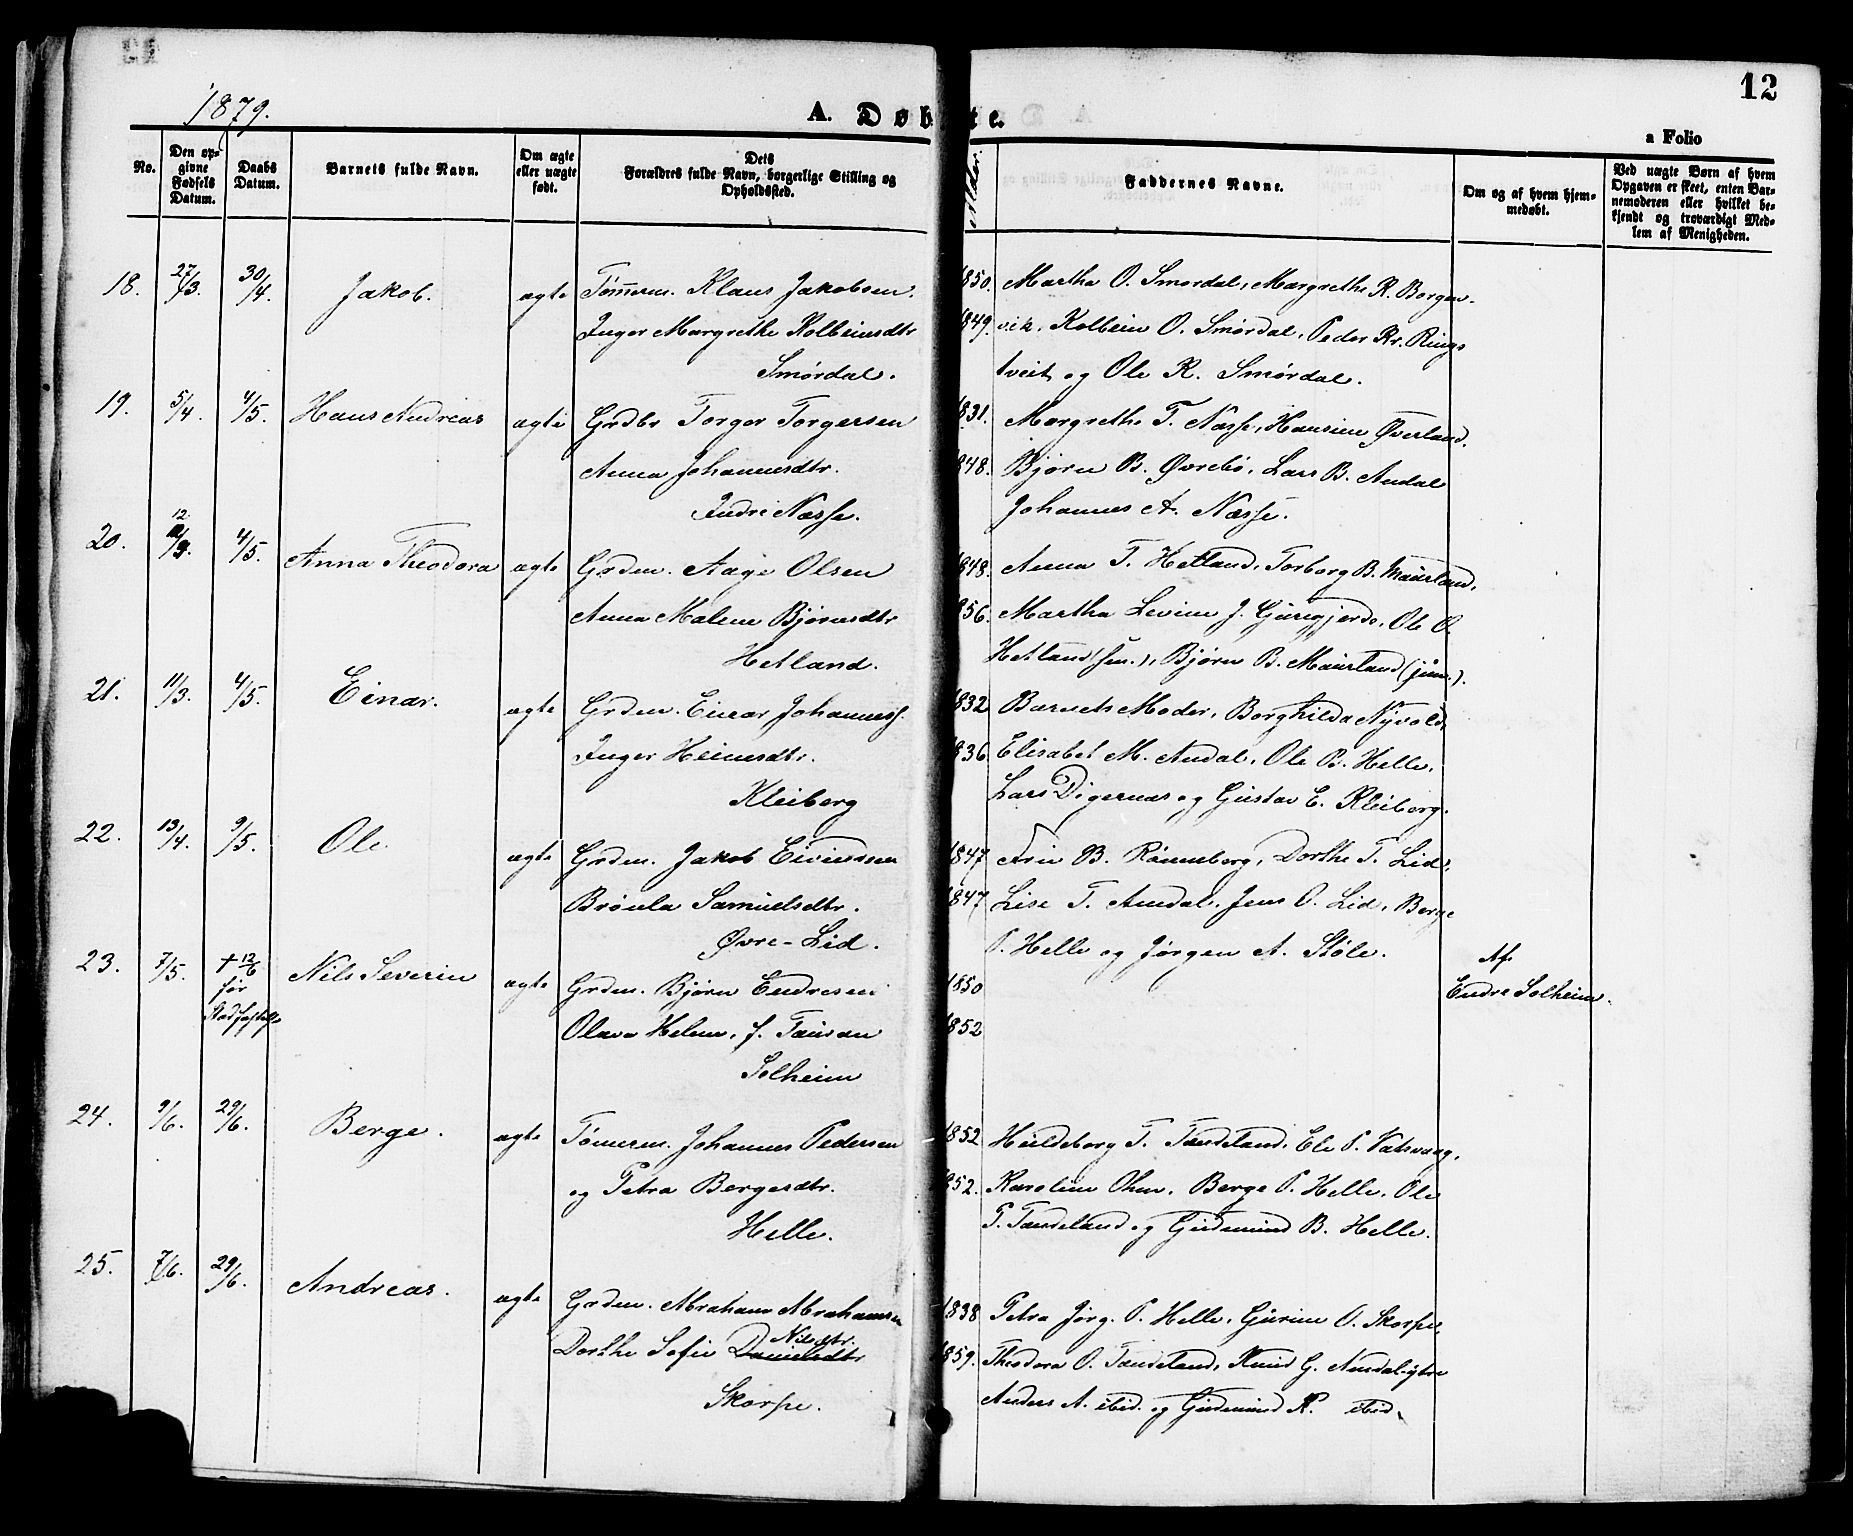 12
1879.
A. Døbte.
a Folio
No.
Den op-
givne
Fødsels
Datum.
Daabs
Datum.
Barnets fulde Navn.
Om ægte
eller uægte
født.
Dets
Forældres fulde Navn, borgerlige Stilling og
Opholdssted.
Alder.
Faddernes Navne.
Om og af hvem hjem-
medøbt.
Ved uægte Børn af hvem
Opgaven er skeet, enten Bar-
nemoderen eller hvilket be-
kjendt og troværdigt Med-
lem af Menigheden.
18. 27/3. 30/4. Jakob. ægte Tømmerm. Klaus Jakobsen. 1850. Martha O. Smørdal, Margrethe K. Borgen-
Inger Margrethe Kolbeinsdtr 1849. vik, Kolbein O. Smørdal, Peder Kr. Rings
Smørdal. tveit og Ole K. Smørdal.
19. 5/4. 4/5. Hans Andreas ægte Grdbr Torger Torgersen 1831. Margrethe T. Næsse, Hansine Øverland.
Anna Johannesdtr. 1848. Bjørn B. Øvrebø, Lars B. Andal
Indre Næsse. Johannes A. Næsse.
20. 12/3. 4/5. Anna Theodora ægte Grdm. Aage Olsen 1848. Anna T. Hetland, Torborg B. Maurland,
Anna Malene Bjørnsdtr 1856. Martha Levine J. Gjuregjerde, Ole O.
Hetland. Hetland (sen.), Bjørn B. Maurland (jun.).
21. 11/3. 4/5. Einar. ægte Grdm. Einar Johanness. 1832 Barnets Moder, Borghilda Nyvold,
Inger Heinesdtr. 1836 Elisabet M. Andal, Ole B. Helle,
Kleiberg Lars Digernæs og Gustav E. Kleiberg.
22. 13/4. 9/5. Ole ægte Grdm. Jakob Eivindsen 1847 B. Rønneberg, Dorthe T. Lid,
Brønla Samuelsdtr. 1847 Lise T. Amdal, Jens O. Lid, Berge
Øvre-Lid. P. Helle og Jørgen A. Støle.
23. 7/5. † 12/6 Nils Severin ægte Grdm. Bjørn Endresen 1850 Af
før Endre Solheim.
Stadfæstelse Olava Helene, f. Tausan 1852
Solheim
24. 9/6. 29/6. Berge. ægte Tømmerm. Johannes Pedersen 1852 Huldeborg T. Tændeland, Eli P. Vatsvaag,
og Petra Bergesdtr. 1852. Karoline Ohm, Berge P. Helle, Ole
Helle. P. Tændeland og Gudmund B. Helle.
25. 7/6. 29/6. Andreas. ægte Grdm. Abraham Abrahamsen 1838 Petra Jørg. P. Helle, Gurine O. Skorpe,
Nilsdtr.
Dorthe Sofie Danielsdtr 1859. Theodora O. Tændeland, Knud G. Amdal-ytre
Skorpe. Anders A. ibid. og Gudmund K. ibid.